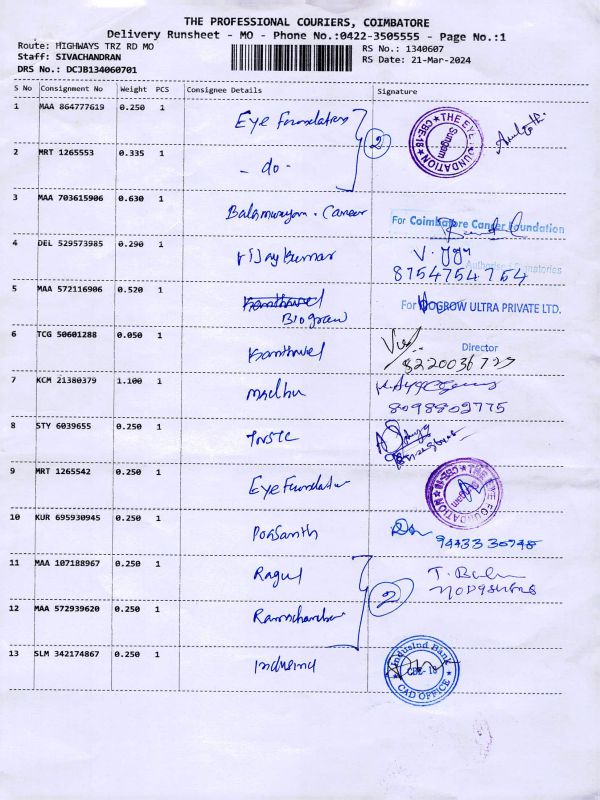 THE PROFESSIONAL COURIERS, COIMBATORE
Delivery Runsheet - MO - Phone No.:0422-3505555 - Page No.:1
Route: HIGHWAYS TRZ RD MO
RS No.: 1340607
Staff: SIVACHANDRAN
RS Date: 21-Mar-2024
DRS No.: DCJB134060701
S No Consignment No Weight PCS Consignee Details Signature
1 MAA 864777619 0.250 1 Eye Foundation
2
THE EYE FOUNDATION CBE-18 Sungam
2 MRT 1265553 0.335 1 - do -
3 MAA 703615906 0.630 1
For Coimbatore Cancer Foundation
4 DEL 529573985 0.290 1 Vijaykumar
Authorised Signatories
8754754754
5 MAA 572116906 0.520 1 Kanthvel
Biogrow
For BIOGROW ULTRA PRIVATE LTD.
Director
6 TCG 50601288 0.050 1 Kanthvel
7 KCM 21380379 1.100 1 Madhu
8098802775
8 STY 6039655 0.250 1
9 MRT 1265542 0.250 1 Eye Foundation
THE EYE FOUNDATION CBE-18 Sungam
10 KUR 695930945 0.250 1 Prasanth
11 MAA 107188967 0.250 1 Ragul
2
12 MAA 572939620 0.250 1
13 SLM 342174867 0.250 1 Indusind
IndusInd Bank CBE-18 CAD OFFICE